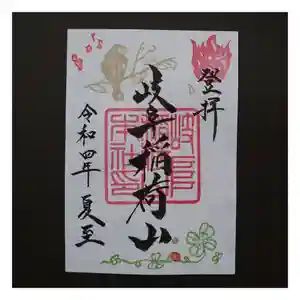 登拝
岐阜稲荷山
令和四年 夏至